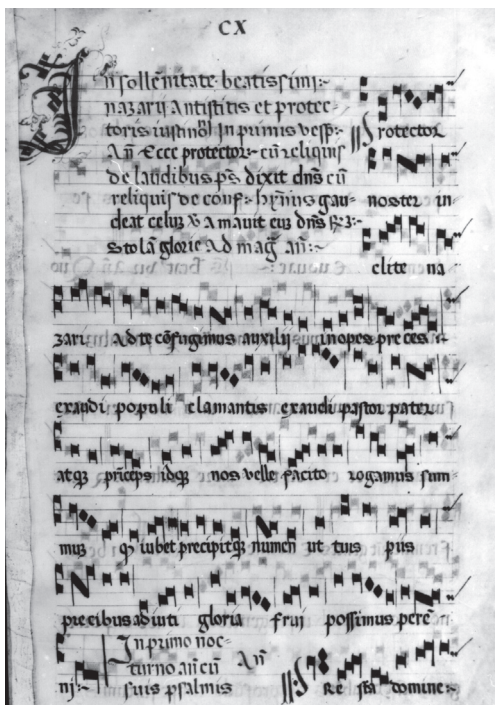 CX
In sollēnitate beatissimi:~
nazarij Antistitis et protec-
toris iustinoꝉ In primis vesꝑ:~
Añ Ecce protector· cū reliquis
de laudibus ps̄ dixit dn̄s cū
reliquis de conf:~ hȳnus gau-
deat celuꝫ v̄ amauit euꝫ dn̄s
stolā glorie Ad mag̃ añ:~
Protector
noster in
clite na
zari: ad te cōfugimus auxilij inopes preces
exaudi populi clamantis exaudi pastor pater
atqꝫ prīceps idqꝫ nos velle facito rogamus sum
mus qͥ iubet precipitqꝫ numen ut tuis piis
precibus adiuti gloria frui possimus perēn
ni:~ In primo noc-
turno añ cū Añ
suis psalmis Re ista domine:~